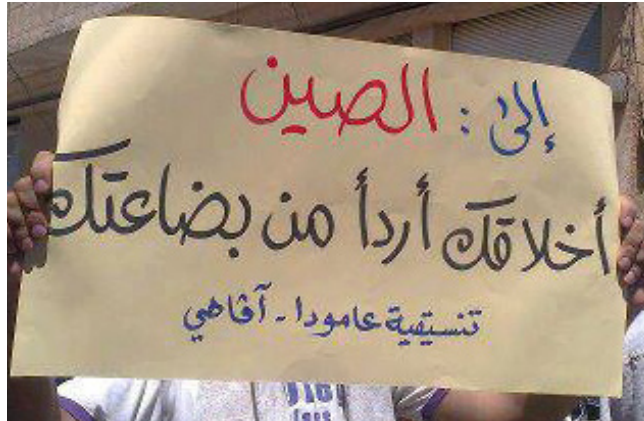 إلى : الصين
أخلاقك أردأ من بضاعتك
تنسيقية عامودا - آڤاهي